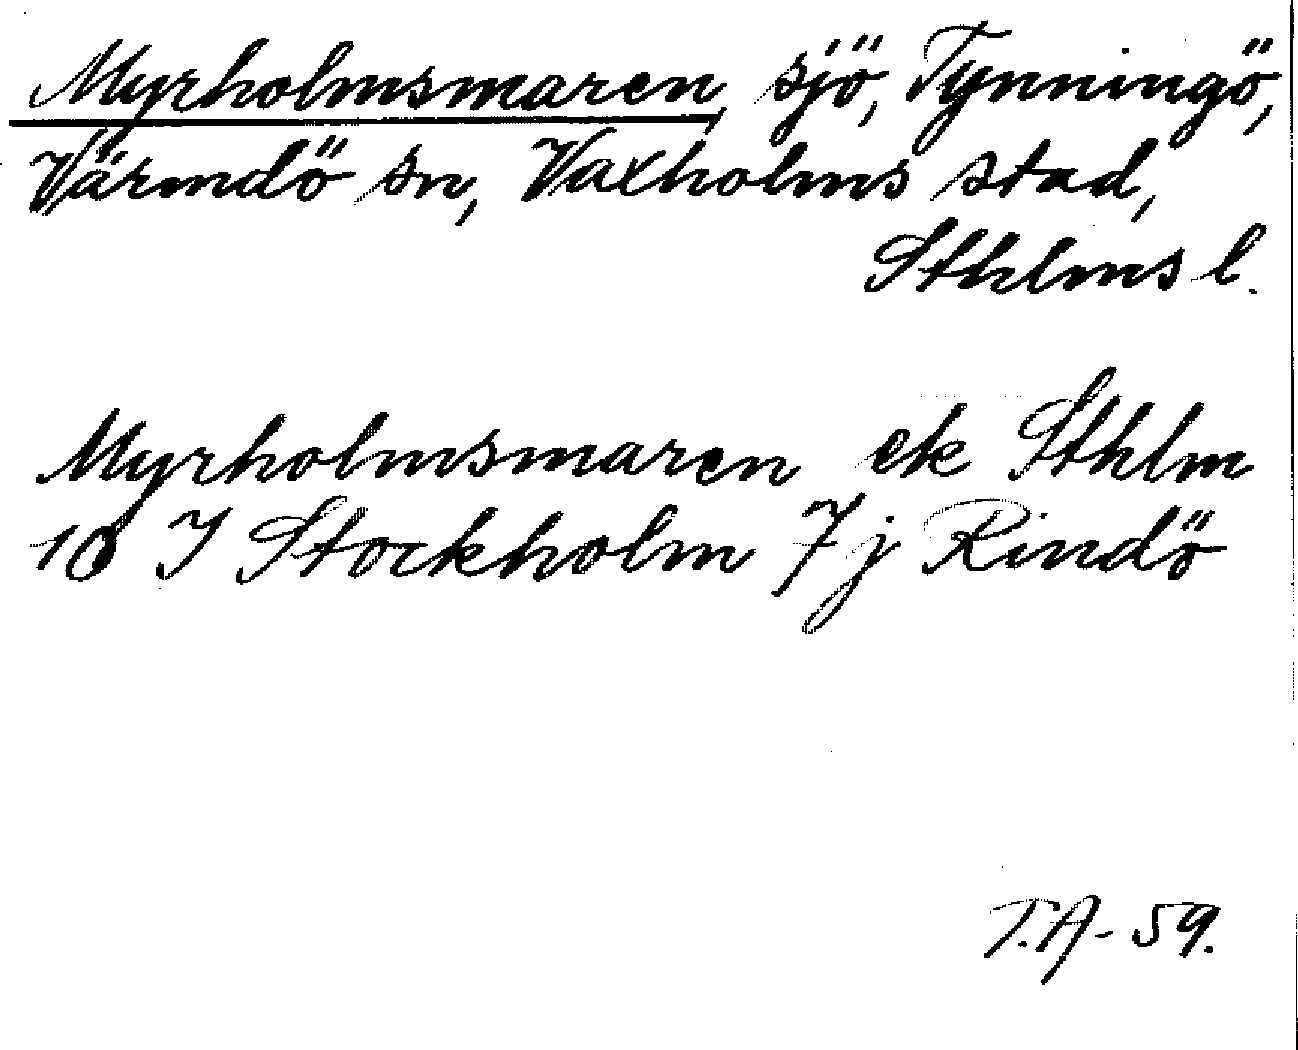 Myrholmsmaren, sjö, Tynningö,
Värmdö sn, Vaxholms stad,
Sthlms l.
Myrholmsmaren ek Sthlm
10 I Stockholm 7 j Rindö
T.A-59.